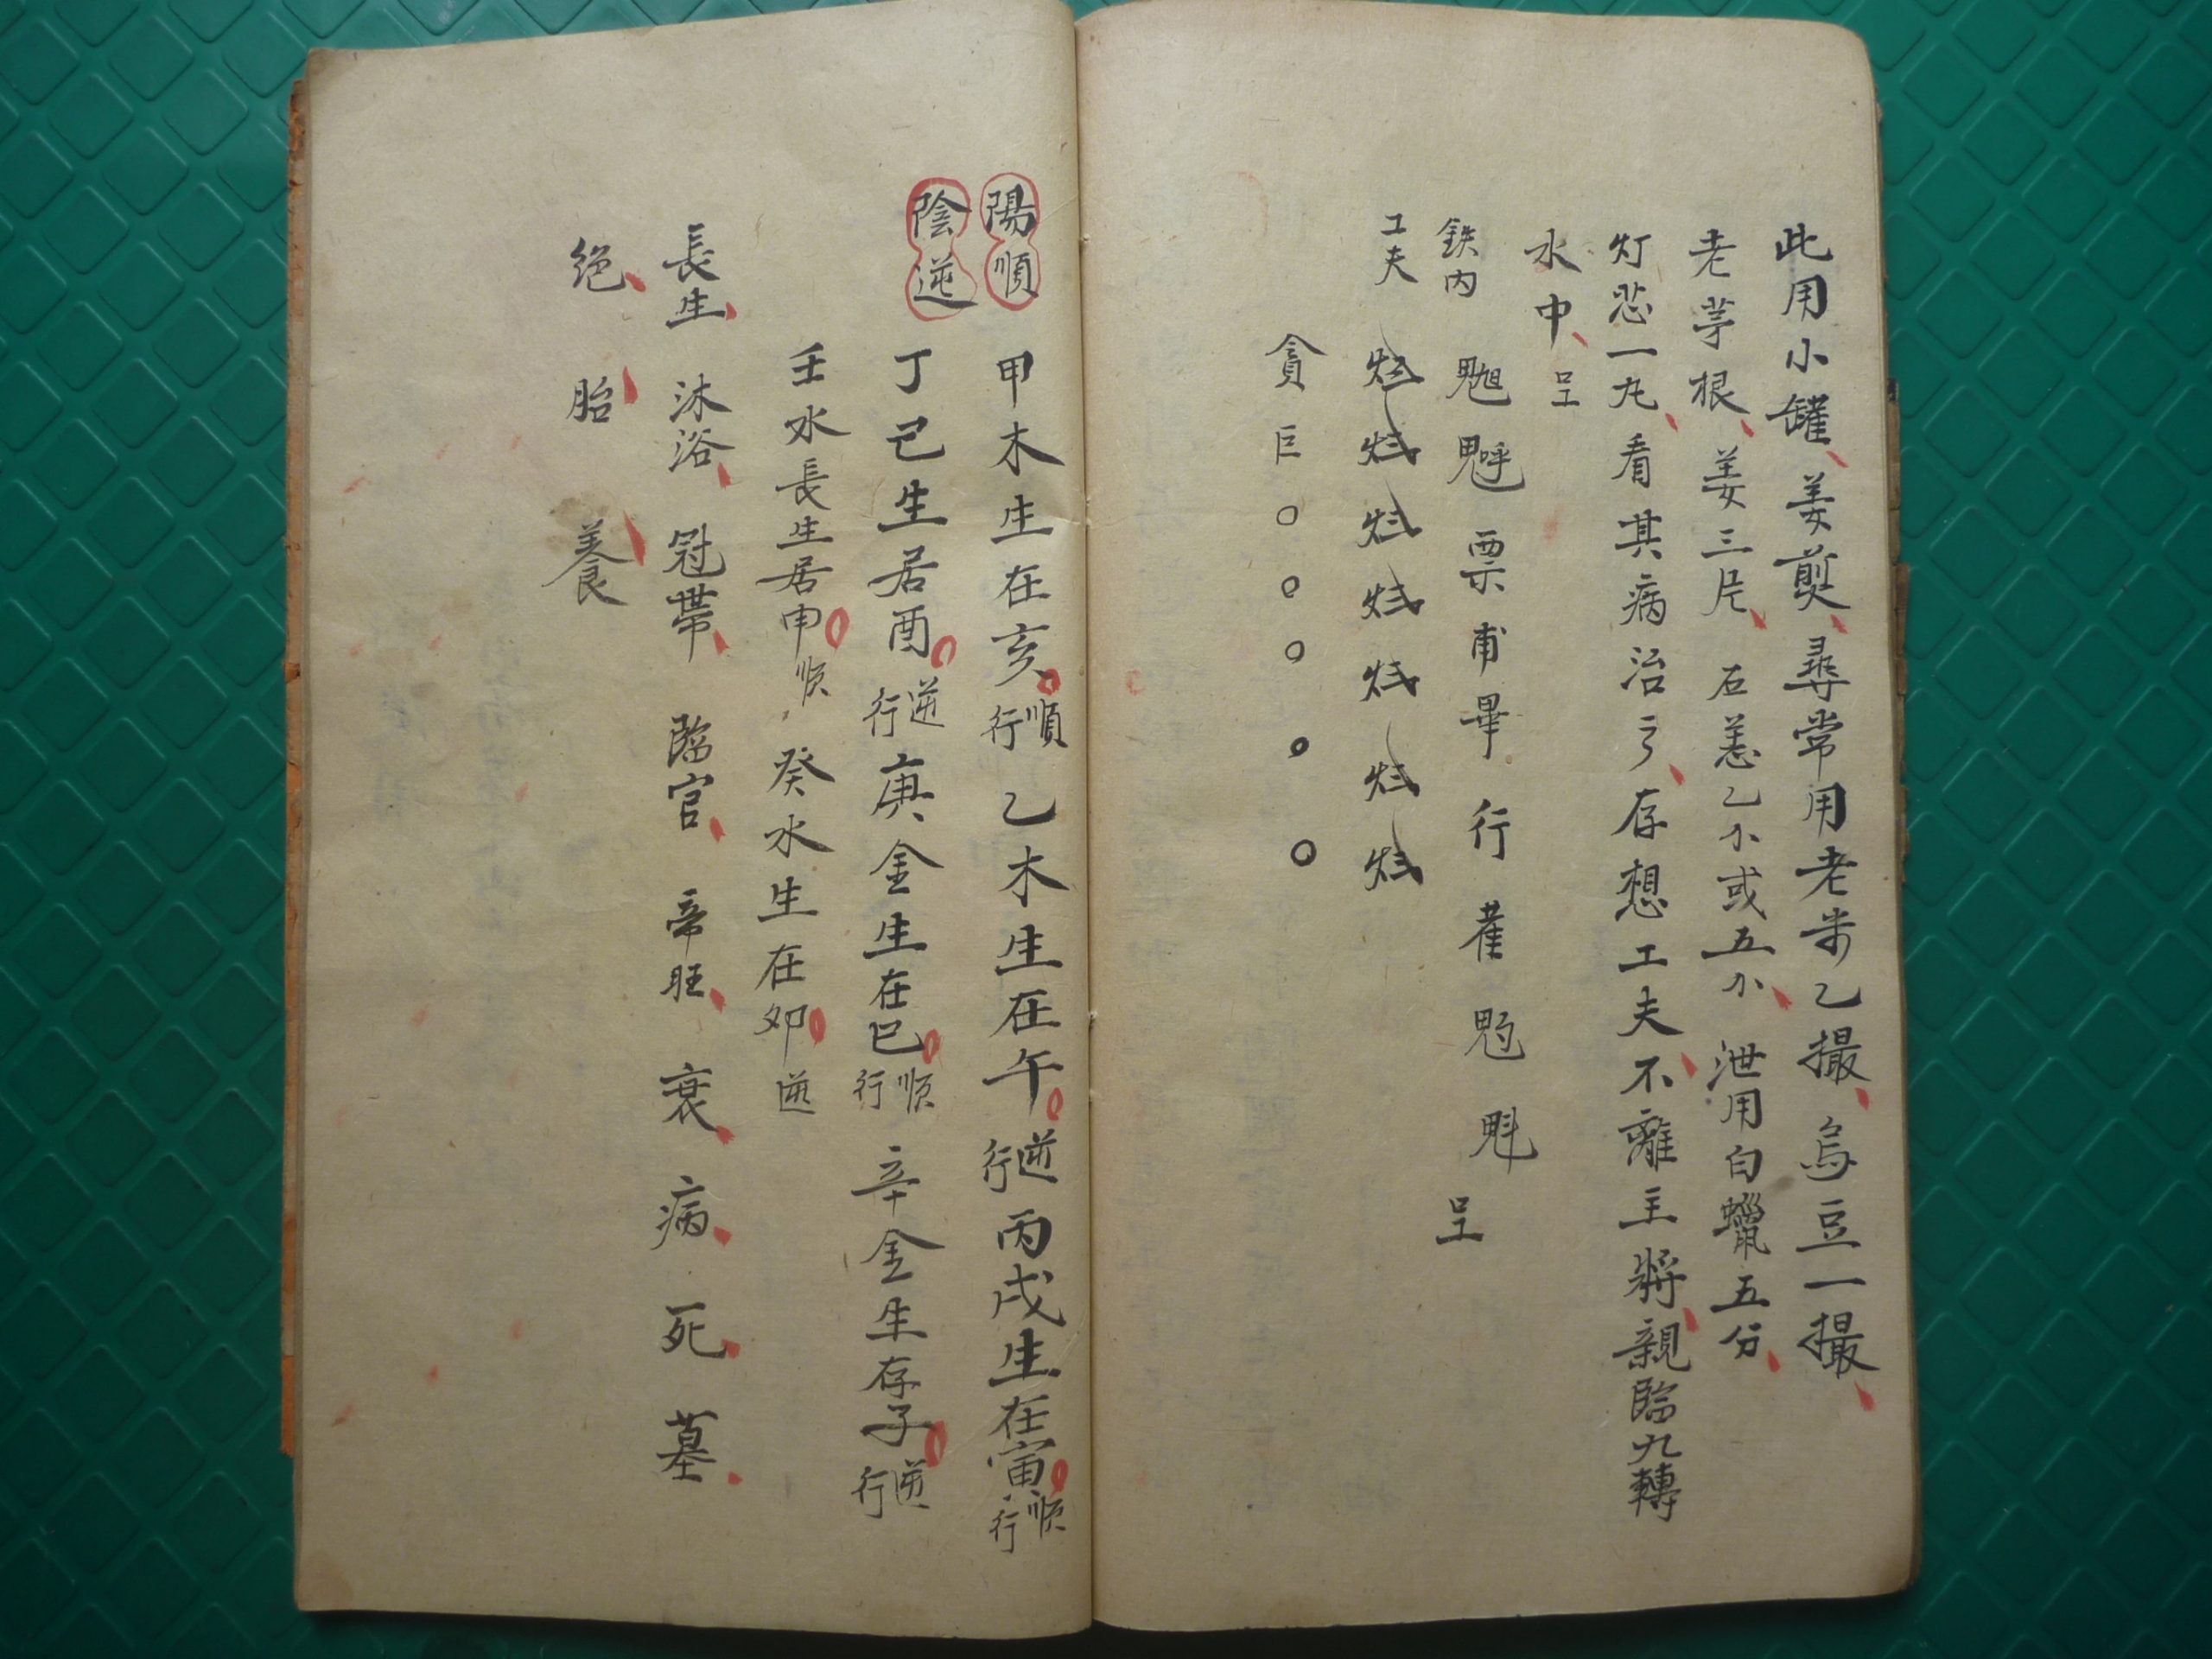 此用小罐、姜煎、尋常用老米乙撮、烏豆一撮、
老茅根、姜三片、石羔乙小或五小、泄用白蠟五分、
灯芯一丸、看其病治之、存想工夫、不離主將、親臨九轉
水中、呈
鉄内 票甫畢行 呈
工夫
貪巨○○○○○
陽順 甲木生在亥。順行 乙木生在午。逆行 丙戊生在寅。順行
陰逆 丁己生居酉。逆行 庚金生在巳。順行 辛金生存子。逆行
壬水長生居申。順 癸水生在卯。逆
長生、沐浴、冠帶、臨官、帝旺、衰、病、死、墓、
絕、胎、養